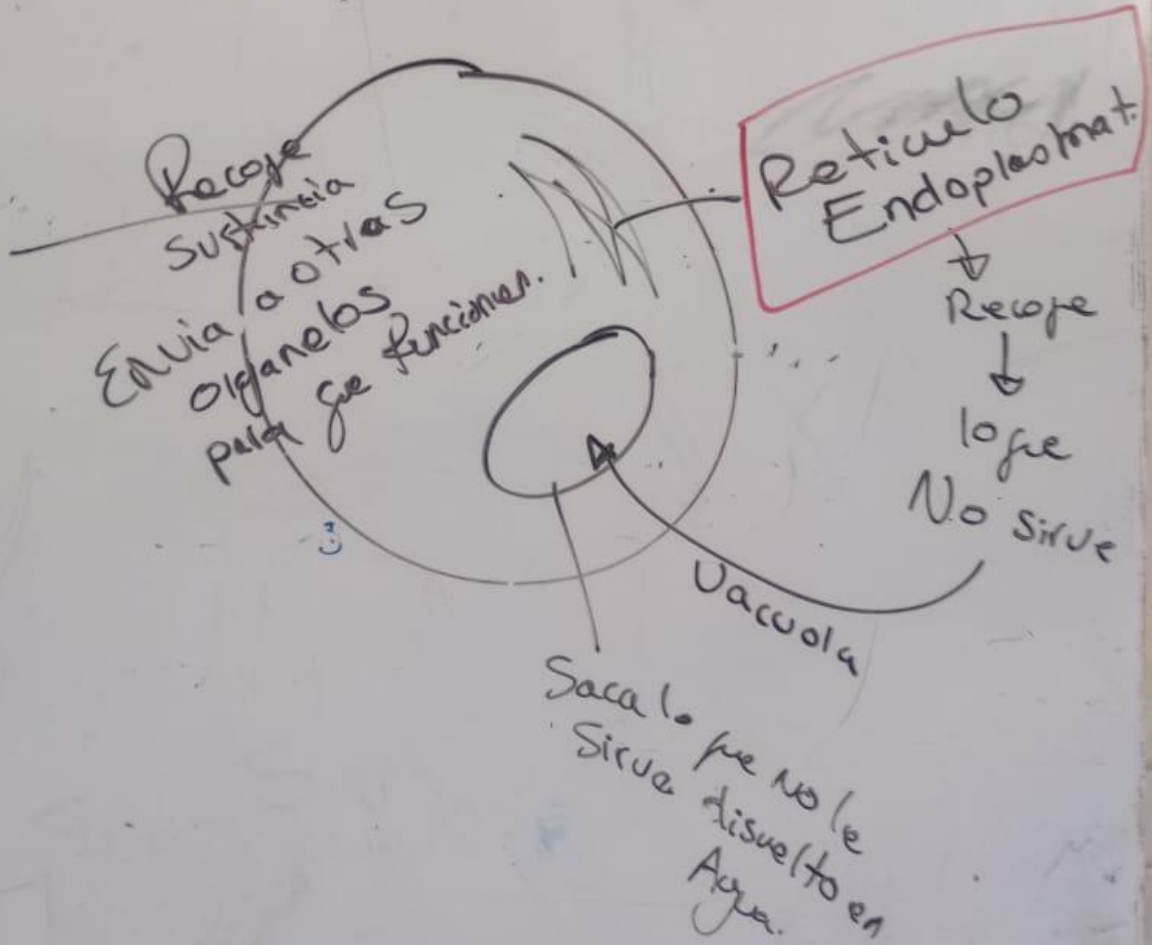 Recoge
Sustancia
Envia a otras
organelos
para que funcionen.
Reticulo
Endoplasmat.
Recoge
lo que
No sirve
Vacuola
Saca lo que No le
Sirve disuelto en
Agua.